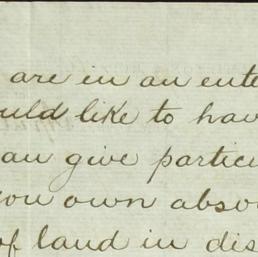 are in an ente
ould like to hav
an give particu
ou own abso
of land in dis